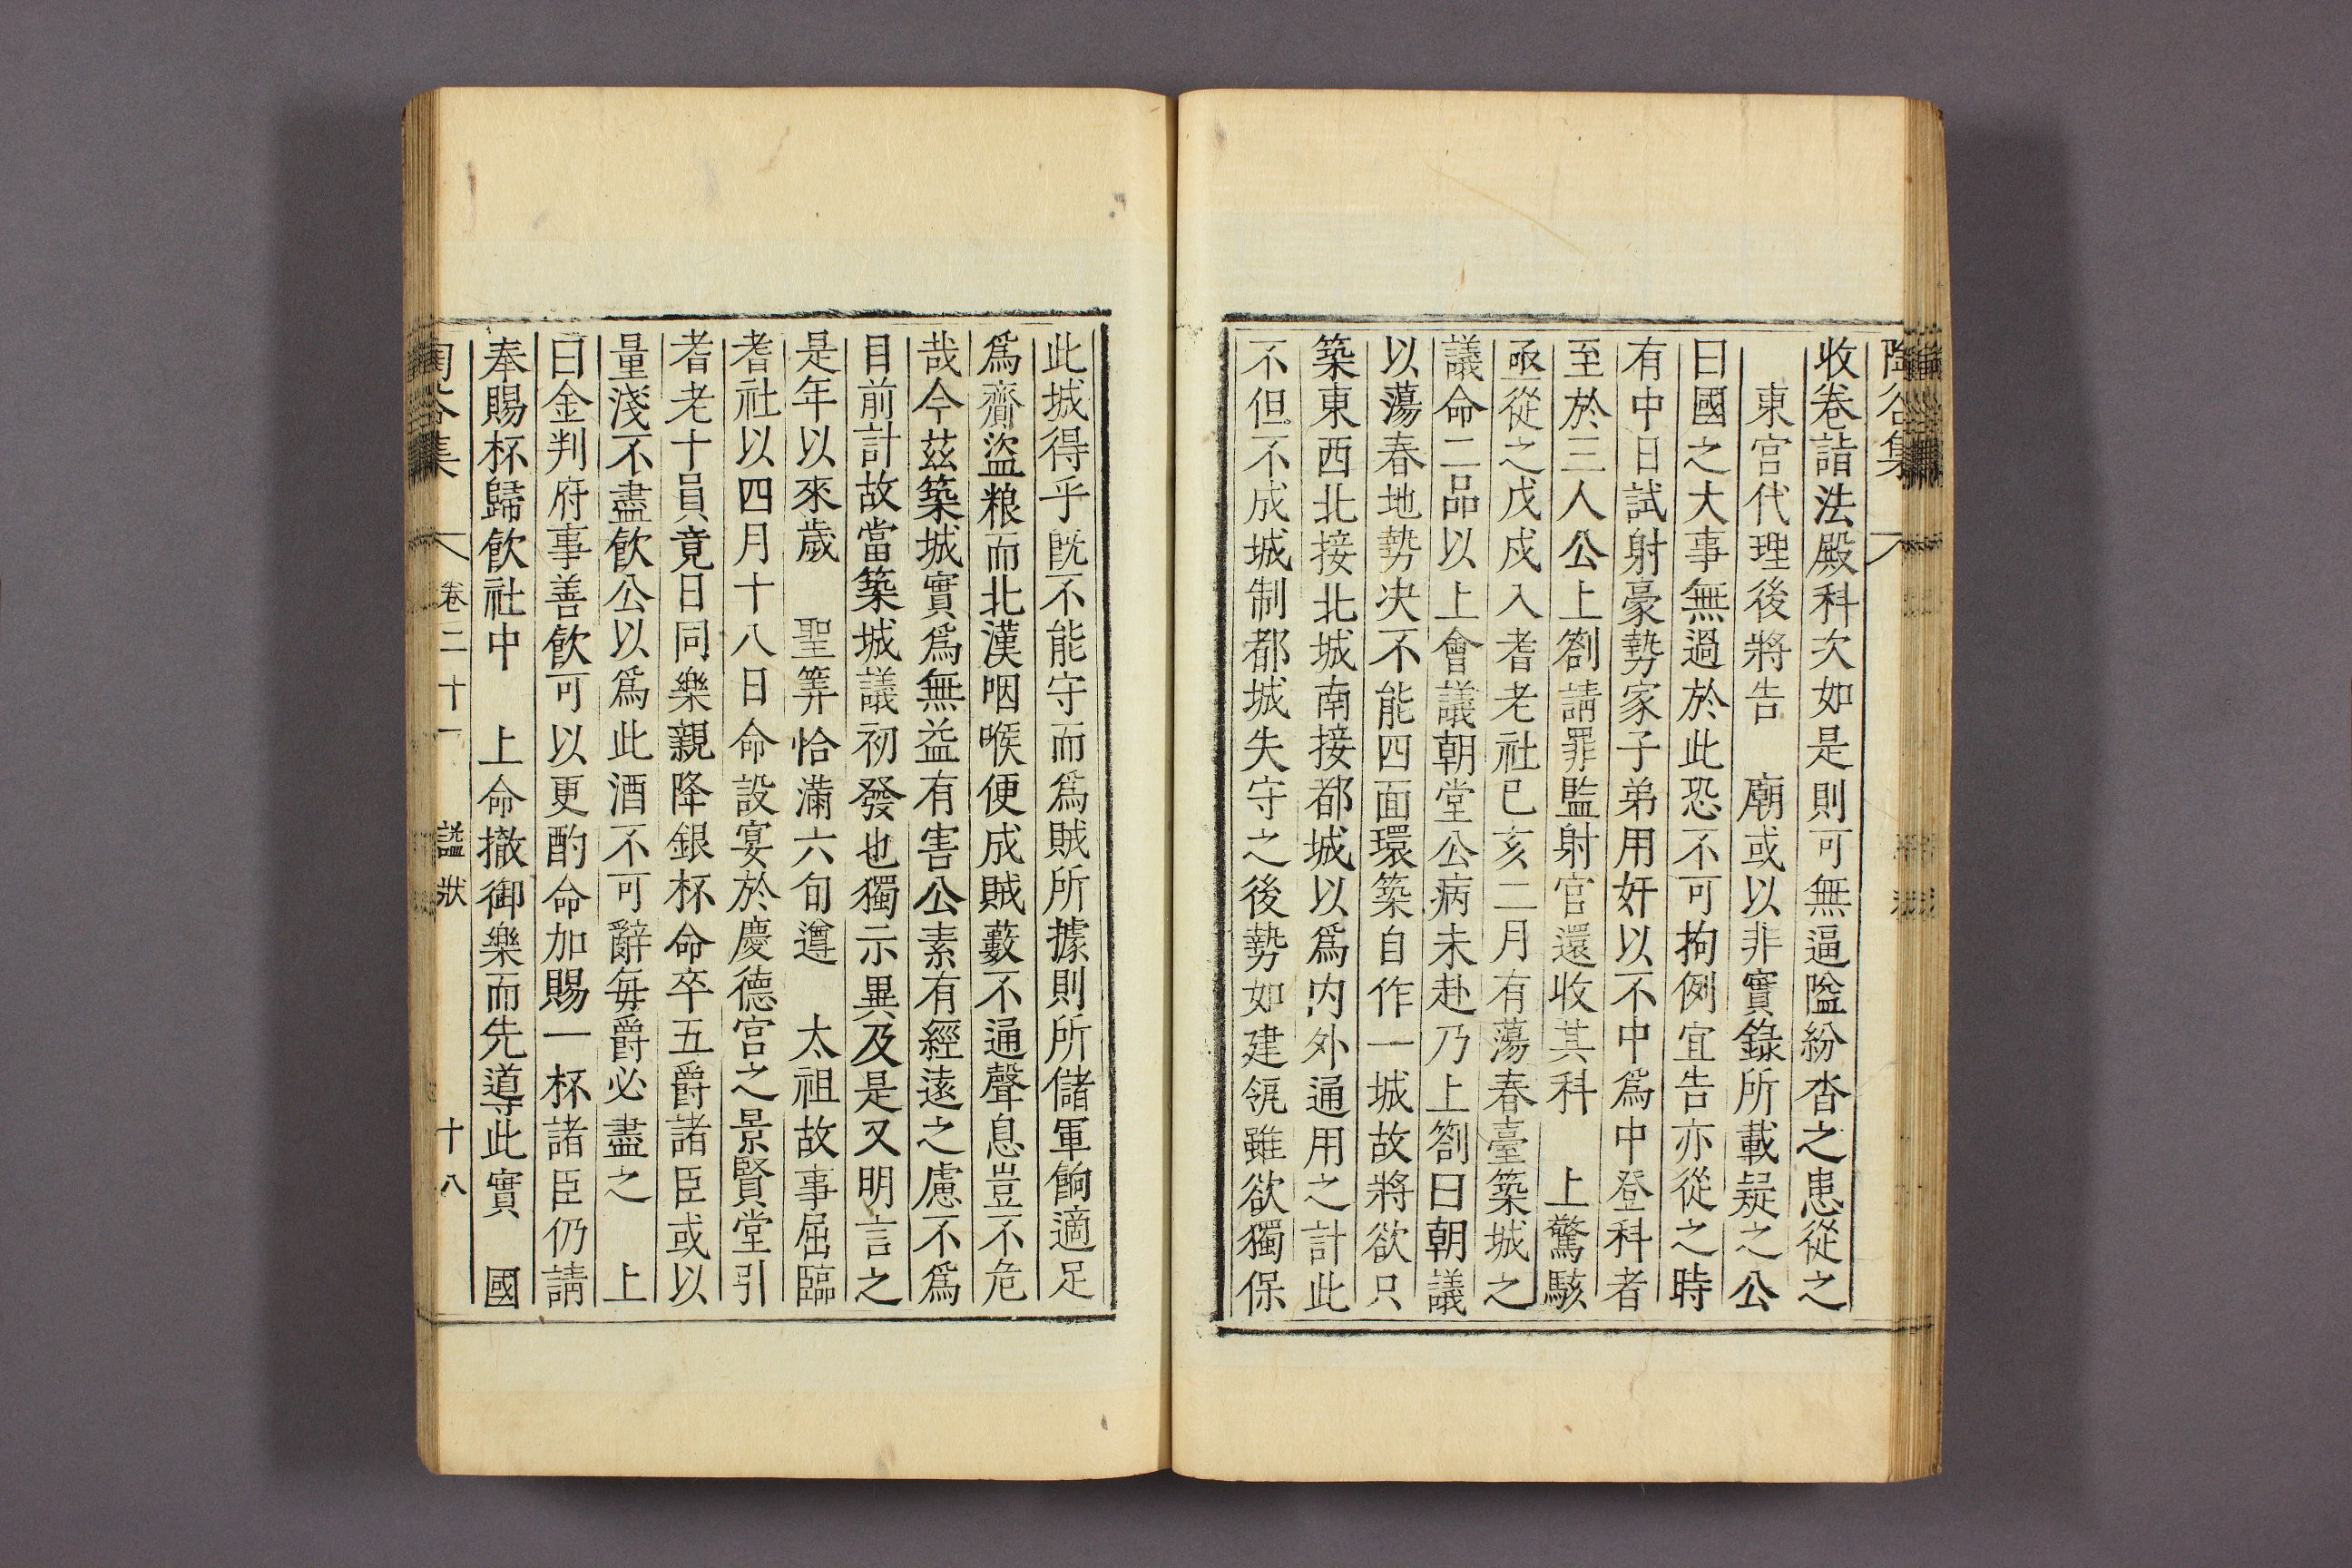 陶谷集
收卷詣法殿科次如是則可無逼隘紛沓之患從之
東宮代理後將告 廟或以非實錄所載疑之公
曰國之大事無過於此恐不可拘例宜告亦從之時
有中日試射豪勢家子弟用奸以不中爲中登科者
至於三人公上劄請罪監射官還收其科 上驚駭
亟從之戊戌入耆老社已亥二月有蕩春臺築城之
議命二品以上會議朝堂公病未赴乃上劄曰朝議
以蕩春地勢决不能四面環築自作一城故將欲只
築東西北接北城南接都城以爲内外通用之計此
不但不成城制都城失守之後勢如建瓴雖欲獨保
此城得乎旣不能守而爲賊所據則所儲軍餉適足
爲齎盜粮而北漢咽喉便成賊藪不通聲息豈不危
哉今茲築城實爲無益有害公素有經遠之慮不爲
目前計故當築城議初發也獨示異及是又明言之
是年以來歲 聖筭恰滿六旬遵 太祖故事屈臨
耆社以四月十八日命設宴於慶德宮之景賢堂引
耆老十員竟日同樂親降銀杯命卒五爵諸臣或以
量淺不盡飮公以爲此酒不可辭每爵必盡之 上
曰金判府事善飮可以更酌命加賜一杯諸臣仍請
奉賜杯歸飮社中 上命撤御樂而先導此實 國
陶谷集 卷二十一 諡狀 十八